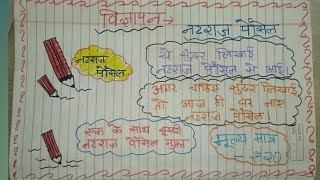 विज्ञापन →
नटराज पेंसिल
नटराज
पेंसिल
ये सुंदर लिखाई
नटराज पेंसिल से आई।
अगर चाहिए सुंदर लिखाई
तो आज ही घर लाए
नटराज पेंसिल
एक के साथ दूसरी
नटराज पेंसिल मुफ्त
मूल्य मात्र
₹20